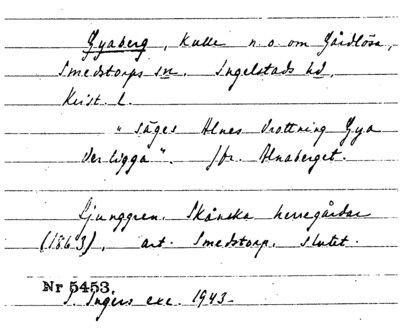 Gyaberg, Kulle n.o. om Gårdlösa,
Smedstorps sn. Ingelstads hd.
Krist. l.
"säges Alnes drottning Gya
der ligga". Jfr. Alnaberget.
Ljunggren. Skånska herregårdar
(1863), art. Smedstorp. Slutet.
Nr 5453.
I. Ingers exc. 1943.